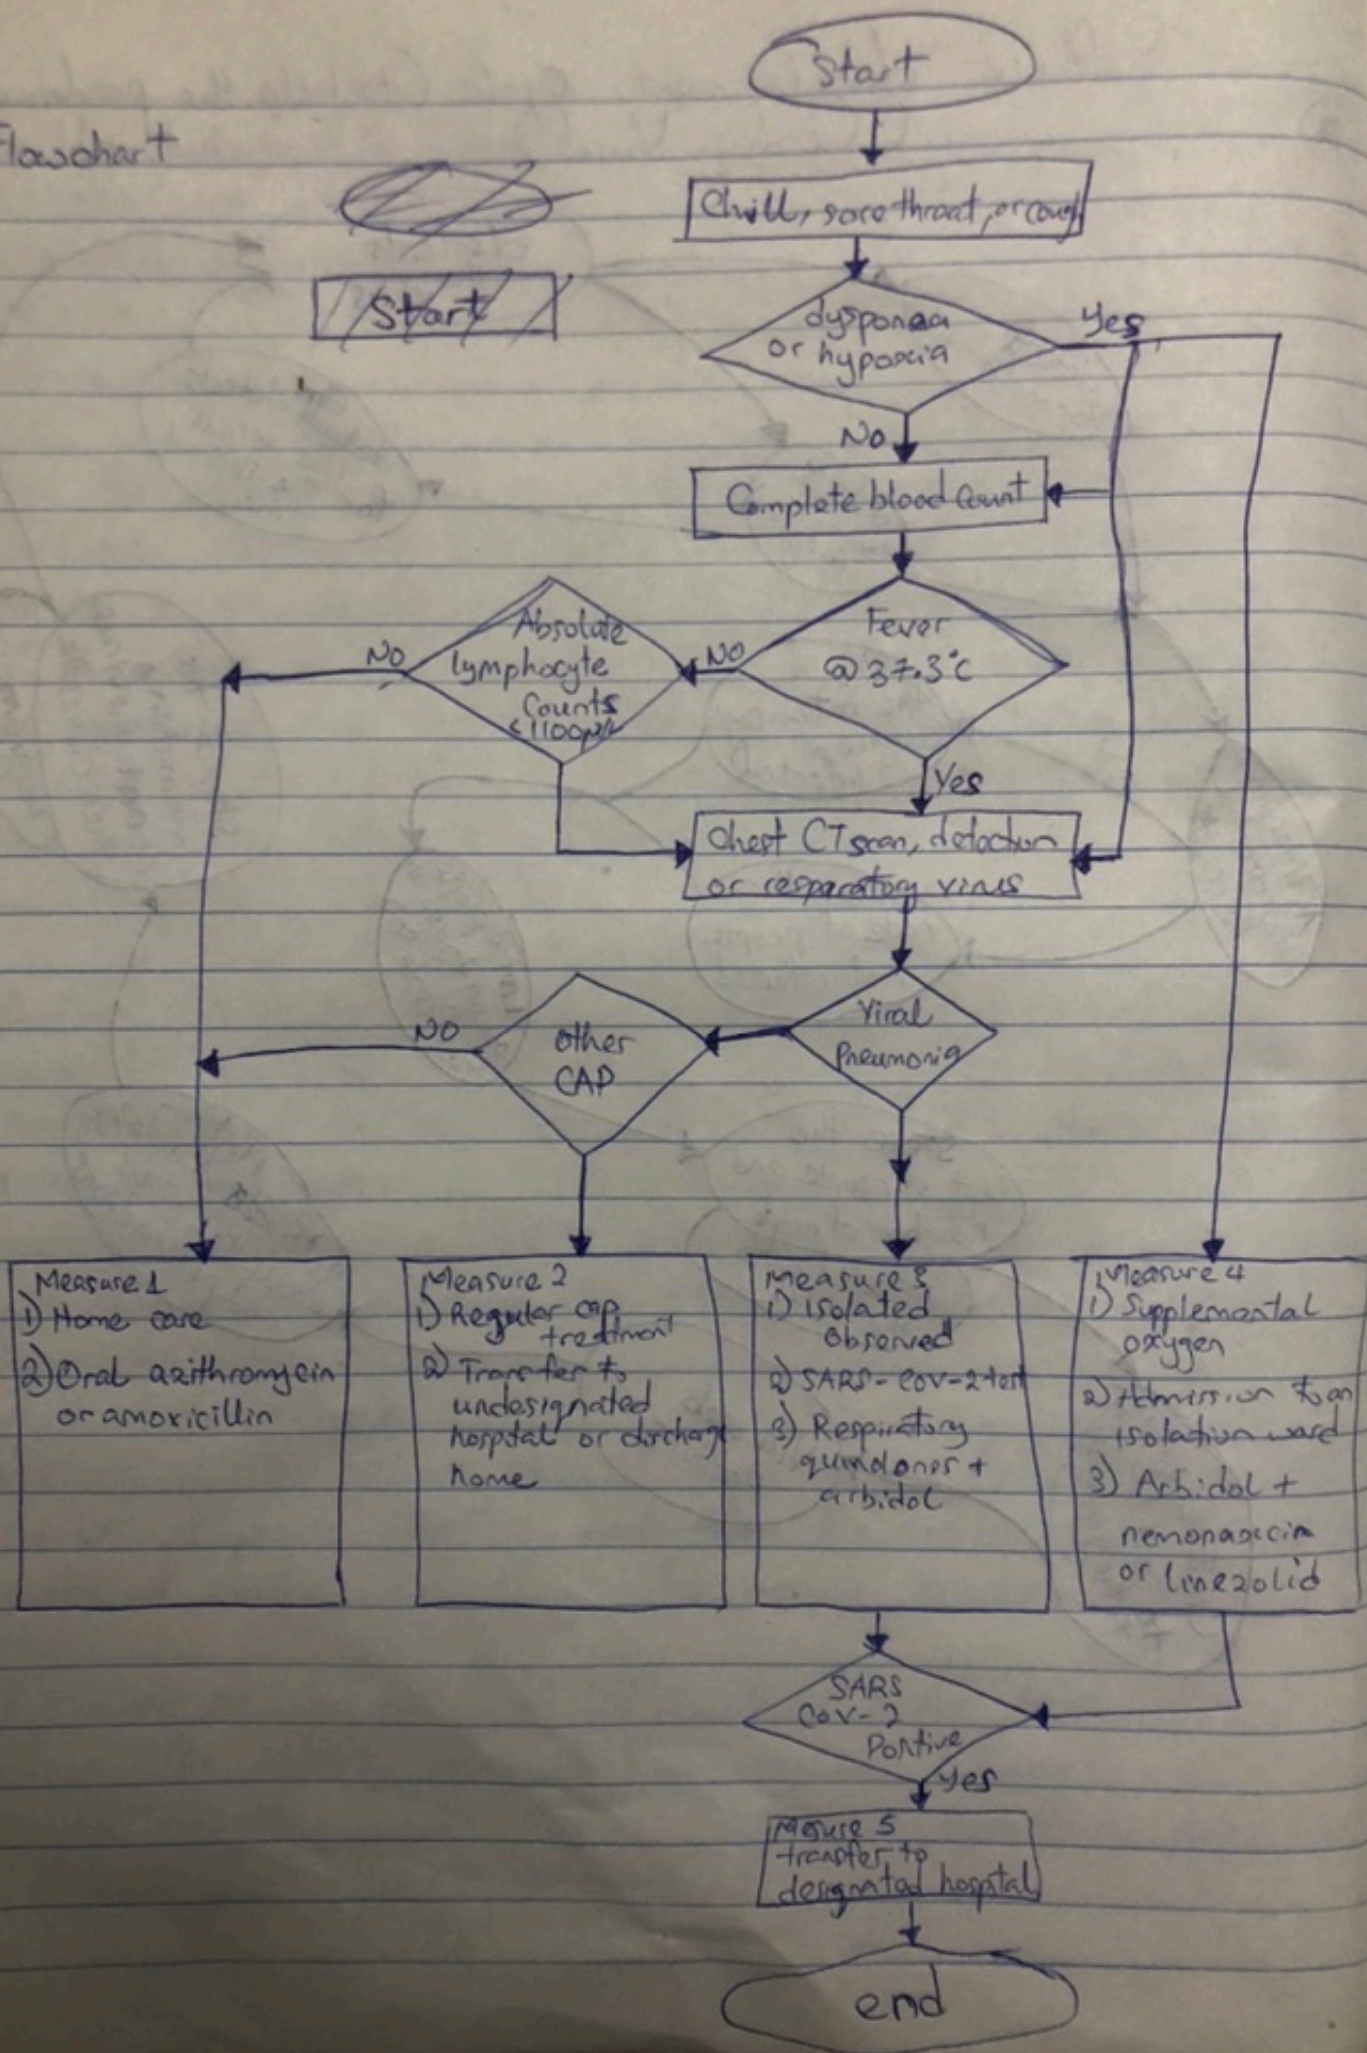 Flowchart
Start
Start
Chill, sore throat, or cough
dysponea
or hypoxia
Yes
No
Complete blood Count
Fever
@ 37.3°C
NO
Absolute
lymphocyte
Counts
<1100
NO
Yes
Chest CT scan, detection
or resparatory virus
Viral
Pneumonia
other
CAP
NO
Measure 1
1) Home care
2) Oral azithromycin
or amoxicillin
Measure 2
1) Regular cap
treatment
2) Transfer to
undesignated
hospital or discharge
home
Measure 3
1) Isolated
Observed
2) SARS-COV-2 test
3) Respiratory
+
arbidol
Measure 4
1) Supplemental
oxygen
2) Admission to an
isolation ward
3) Arbidol +
nemonaxicin
or linezolid
SARS
CoV-2
Portive
Yes
Mesure 5
transfer to
designated hospital
end